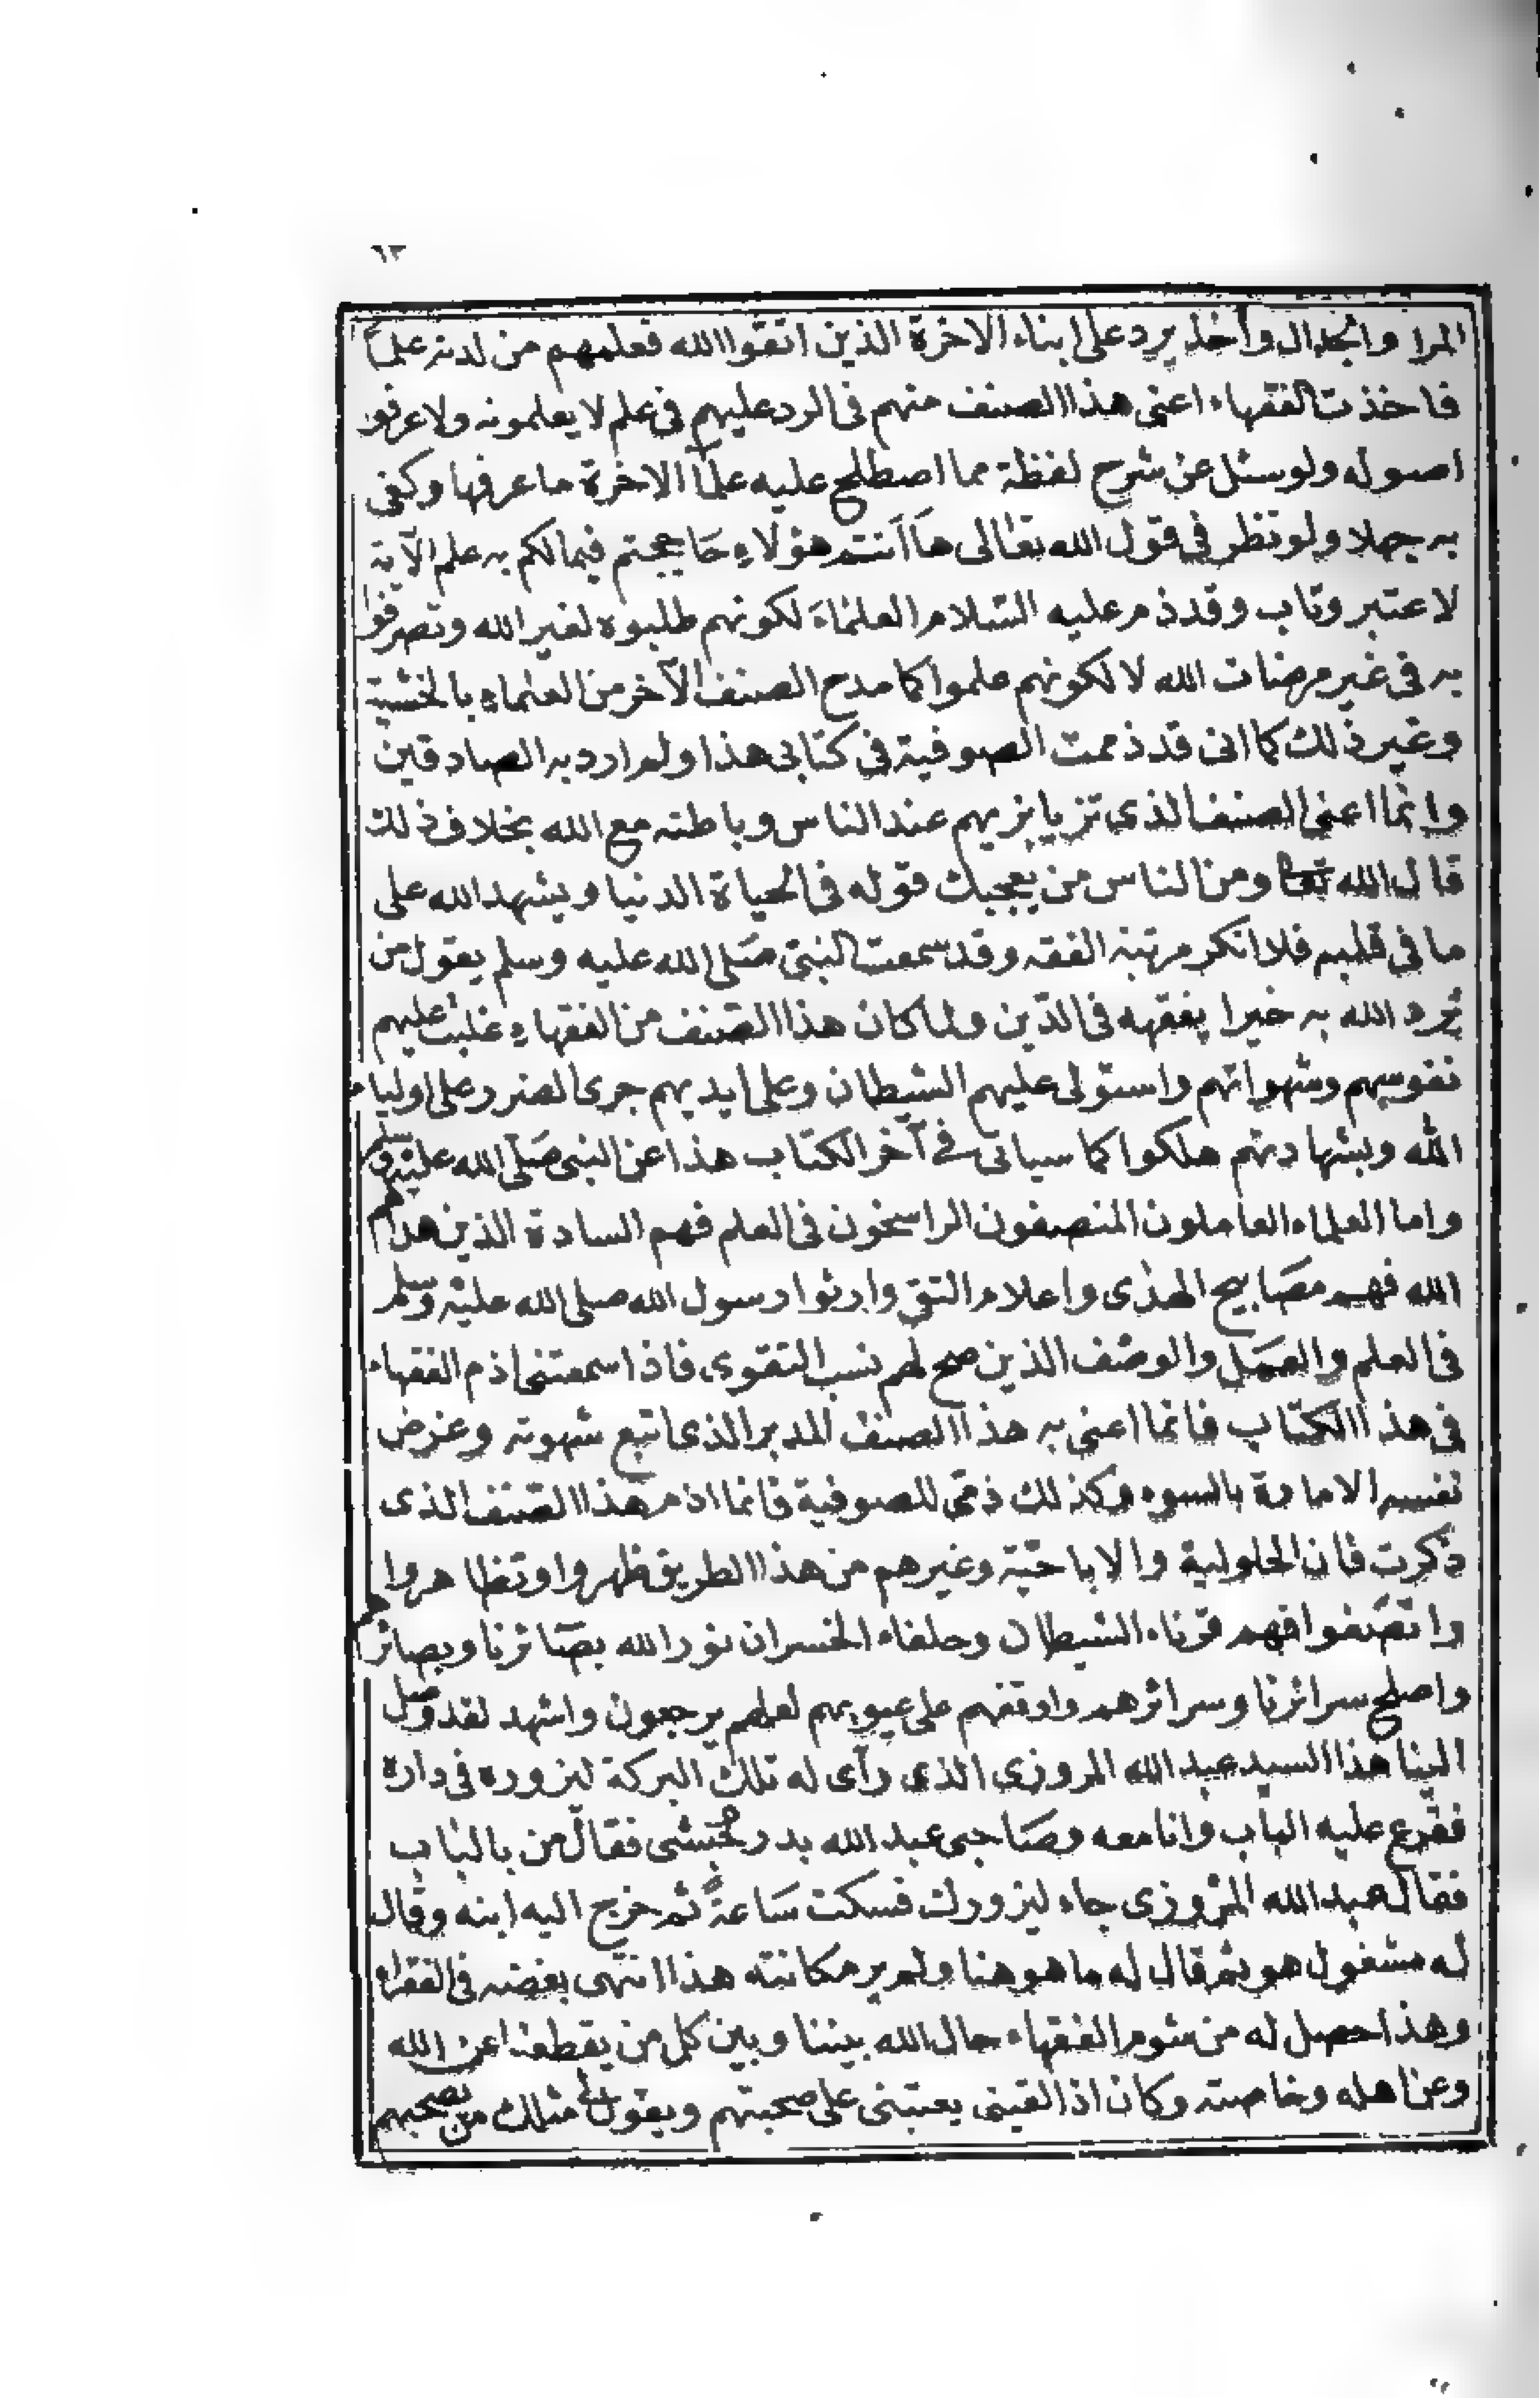 ٦٣
المرا والجدال وأخذ يرد على ابناء الاخرة الذين اتقوا الله فعلمهم من لدنه علماً
فاخذت الفقهاء اعنى هذا الصنف منهم فى الرد عليهم فى علم لا يعلمونه ولا عرفوا
اصوله ولو سئل عن شرح لفظة مما اصطلح عليه علمآ الاخرة ما عرفها وكفى
به جهلا ولو نظر فى قول الله تعالى هَا اَنتم هؤلاءِ حَاججتم فيما لكم به علم الآية
لاعتبر وتاب وقد ذم عليه السّلام العلمَاءَ لكونهم طلبوه لغير الله وتصرفوا
به فى غير مرضات الله لا لكونهم علموا كما مدح الصنف الآخر من العلماءِ بالخشية
وغير ذلك كما انى قد ذممت الصوفية فى كتابى هذا ولم ارد به الصادقين
وانما اعنى الصنف الذى تزيا بزيهم عند الناس وباطنه مع الله بخلاف ذلك
قال الله تعا ومن الناس من يعجبك قوله فى الحياة الدنيا ويشهد الله على
ما فى قلبه فلا انكر مرتبة الفقه وقد سمعت النبىّ صَلى الله عليه وسلم يقول من
يُرد الله به خيرا يفقهه فى الدّين ولما كان هذا الصّنف من الفقهاءِ غلبت عليهم
نفوسهم وشهواتهم واستولى عليهم الشيطان وعلى ايديهم جرى الضرر على اولياء
الله وبشهادتهم هلكوا كما سياتى فى آخر الكتاب هذا عن النبى صَلّى الله عليه وسلم
واما العلماء العاملون المنصفون الراسخون فى العلم فهم السادة الذين هداهم
الله فهم مصَابيح الهدٰى واعلام التقى وارثوا رسول الله صلى الله عليه وسلم
فى العلم والعمَل والوصْف الذين صح لهم نسب التقوى فاذا سمعتنى اذم الفقهاء
فى هذا الكتاب فانما اعنى به هذا الصنف المدبر الذى اتبع شهوته وغرض
نفسه الامارة بالسوء وكذلك ذمّى للصوفية فانما اذم هذا الصّنف الذى
ذكرت فان الحلولية والاباحيّة وغيرهم من هذا الطريق ظهروا وتظاهروا
واتصَفوا فهم قرناء الشيطان وحلفاء الخسران نور الله بصَائرنا وبصائرهم
واصلح سرائرنا وسرائرهم واوقفهم على عيوبهم لعلهم يرجعون واشهد لقد وصل
الينا هذا السيد عبد الله المروزى الذى رآى له تلك البركة ليزوره فى داره
فقرع عليه الباب وانا معه وصَاحبى عبد الله بدر حبشى فقال من بالباب
فقال عبد الله المرْوزى جاء ليزورك فسكت سَاعةً ثم خرج اليه ابنه وقال
له مشغول هو ثم قال له ما هو هنا ولم ير مكانته هذا انتهى بغضه فى الفقراء
وهذا حصل له من شوم الفقهاء حال الله بيننا وبين كل من يقطعنا عن الله
وعن اهله وخاصته وكان اذا لقينى يعتبنى على صحبتهم ويقول لى مثلك من يصحبهم